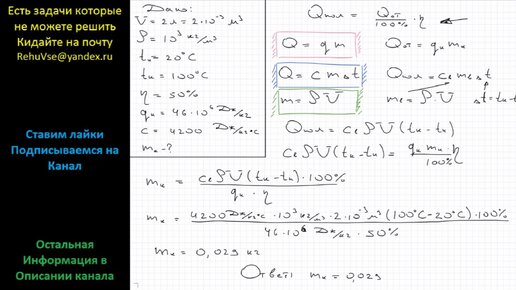 Есть задачи которые
не можете решить
Кидайте на почту
RehuVse@yandex.ru
Ставим лайки
Подписываемся на
Канал
Остальная
Информация в
Описании канала
Дано:
V = 2л = 2·10⁻³ м³
ρ = 10³ кг/м³
tн = 20°C
tк = 100°C
η = 50%
qк = 46·10⁶ Дж/кг
c = 4200 Дж/кг°C
mк - ?
Qпол = Qзат/100% · η
Q = qm
Qзат = qк mк
Q = cmΔt
Qпол = cв mв Δt
m = ρV
mв = ρ·V Δt = tк - tн
Qпол = cв ρV (tк - tн)
cв ρV (tк - tн) = qк mк · η / 100%
mк = cв ρV (tк - tн) · 100% / qк · η
mк = 4200 Дж/кг°C · 10³ кг/м³ · 2·10⁻³ м³ (100°C - 20°C) · 100% / 46·10⁶ Дж/кг · 50%
mк = 0,029 кг
Ответ: mк = 0,029